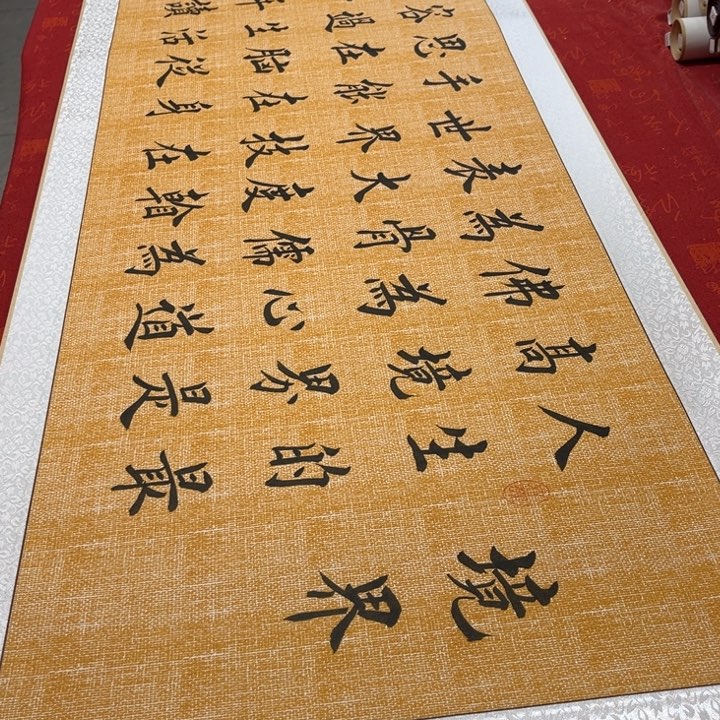 境界
人生的最
高境界是
佛為心道
為骨儒為
表大度
世界技在
手能在身
思在腦從
容過生活
讀